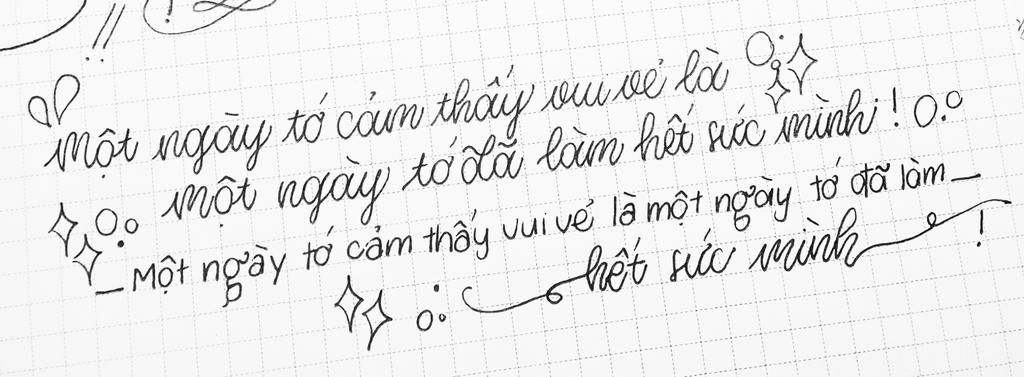 Một ngày tớ cảm thấy vui vẻ là
một ngày tớ đã làm hết sức mình!
Một ngày tớ cảm thấy vui vẻ là một ngày tớ đã làm
hết sức mình!